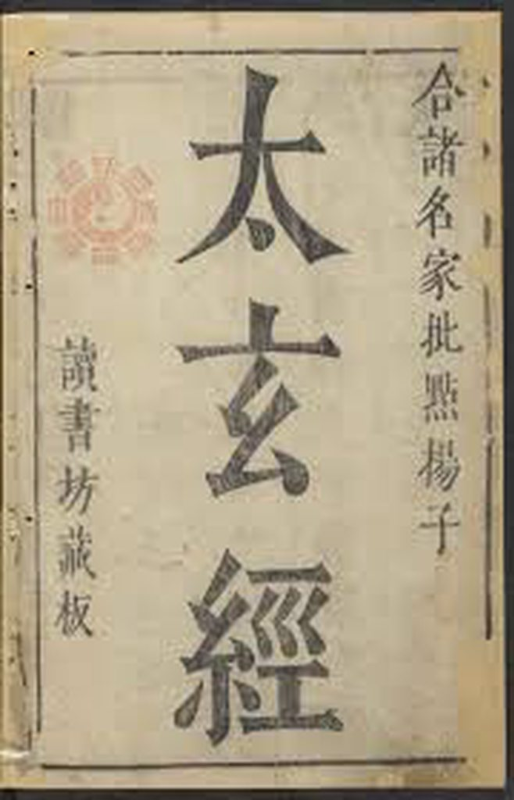 合諸名家批點揚子
太玄經
讀書坊藏板